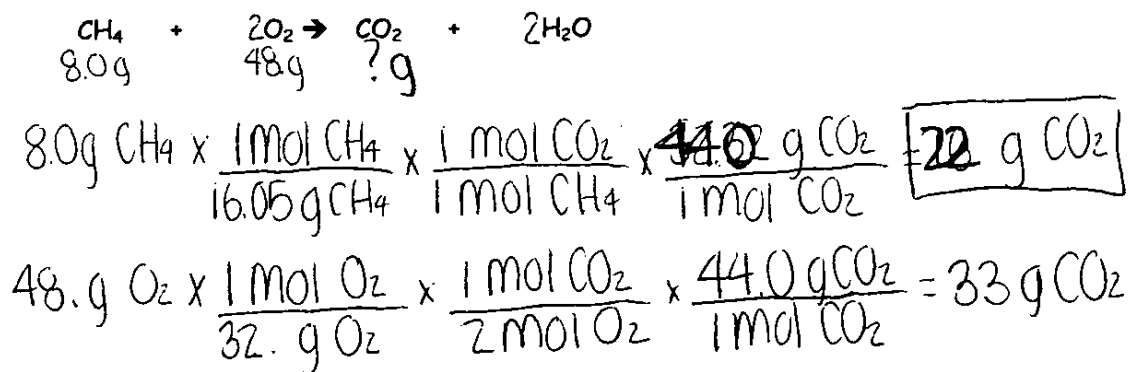 CH₄ + 2O₂ → CO₂ + 2H₂O
8.0g 48.g ?g
8.0g CH₄ x 1 mol CH₄ / 16.05 g CH₄ x 1 mol CO₂ / 1 mol CH₄ x 44.0 g CO₂ / 1 mol CO₂ = 22 g CO₂
48. g O₂ x 1 mol O₂ / 32. g O₂ x 1 mol CO₂ / 2 mol O₂ x 44.0 g CO₂ / 1 mol CO₂ = 33 g CO₂